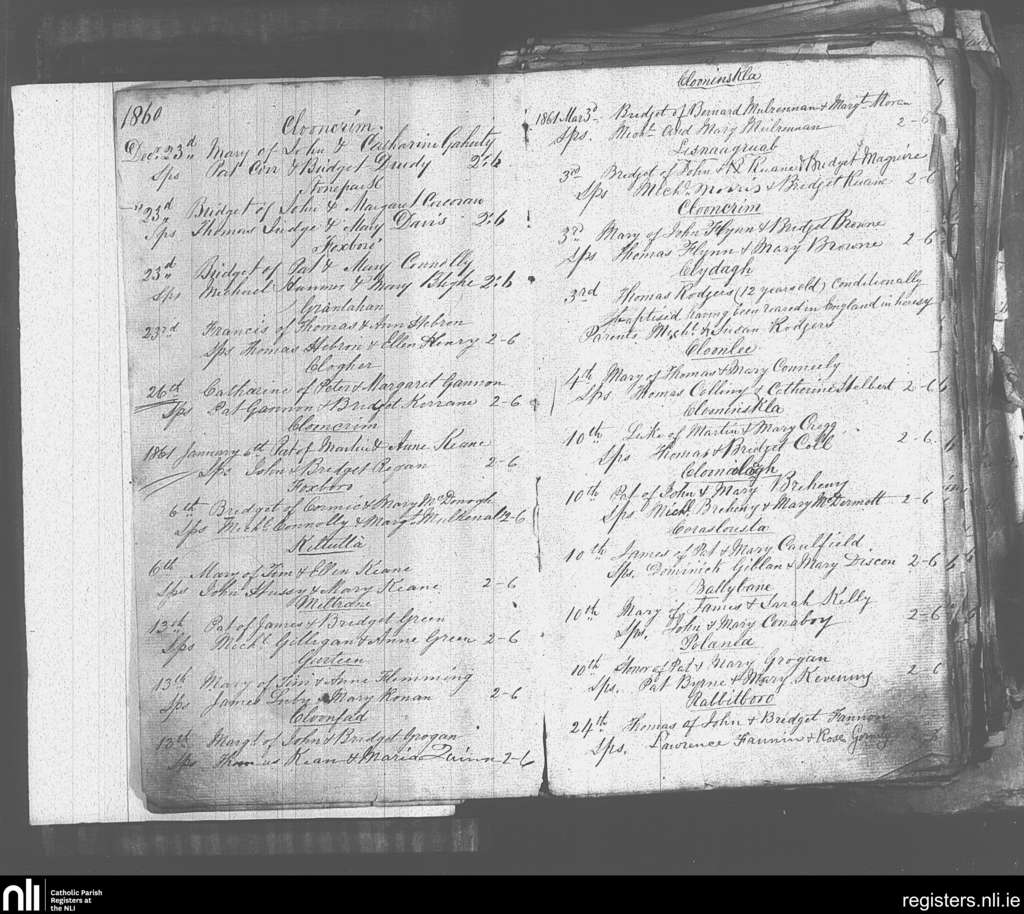 1860
Clooncrim
Decr 23rd Mary of John & Catharine Gahety
Sps Pat Corr & Bridget Drudy 2:6
Stonepark
" 23rd Bridget of John & Margaret Corcoran
Sps Thomas Judge & Mary Davis 2:6
Foxboro
23rd Bridget of Pat & Mary Connolly
Sps Michael & Mary Blighe 2:6
Granlahan
23rd Francis of Thomas & Ann Hebron
Sps Thomas Hebron & Ellen Henry 2-6
Clogher
26th Catharine of Peter & Margaret Gannon
Sps Pat Gannon & Bridget Kerrane 2-6
Clooncrim
1861 January 6th Pat of Martin & Anne Keane
Sps John & Bridget Rogan 2-6
Foxboro
6th Bridget of Cormic & Mary McDonogh
Sps Michl Connolly & Margt 2-6
Kiltulla
6th Mary of Tim & Ellen Keane
Sps John Hussy & Mary Keane 2-6
Miltrane
13th Pat of James & Bridget Green
Sps Michl Gilligan & Anne Green 2-6
Gorteen
13th Mary of Tim & Anne Flemming
Sps James & Mary Ronan 2-6
Cloonfad
13th Margt of John & Bridget Grogan
Sps Thomas Kean & Maria Quinn 2-6
Clooninskla
1861 Mar 3d Bridget of Bernard Mulrennan & Margt Moran
Sps. Michl and Mary Mulrennan 2-6
Lisnaagruab
3rd Bridget of John Ruane & Bridget Maguire
Sps Michl Morris & Bridget Ruane 2-6
Clooncrim
3rd Mary of John Flynn & Bridget Browne
Sps Thomas Flynn & Mary Browne 2-6
Clydagh
3rd Thomas Rodgers (12 years old) Conditionally
Baptised having been reared in England in heresy
Parents Michl & Susan Rodgers
Cloonlee
4th Mary of Thomas & Mary Conneely
Sps Thomas Colliny & Catherine 2-6
Clooninskla
10th Luke of Martin & Mary Cregg
Sps Thomas & Bridget Coll 2-6
Cloonalagh
10th Pat of John & Mary Breheny
Sps Michl Breheny & Mary McDermott 2-6
Coraslousta
10th James of Pat & Mary Caulfield
Sps. Dominick Gillan & Mary Discon 2-6
Ballybane
10th Mary of James & Sarah Kelly
Sps. John & Mary Conaboy 2-6
Polanea
10th Honor of Pat & Mary Grogan
Sps. Pat Byrne & Mary Keveny 2-6
Rabbitboro
24th Thomas of John & Bridget Fannon
Sps. Lawrence Fannin & Rose
nli
Catholic Parish
Registers at
the NLI
registers.nli.ie